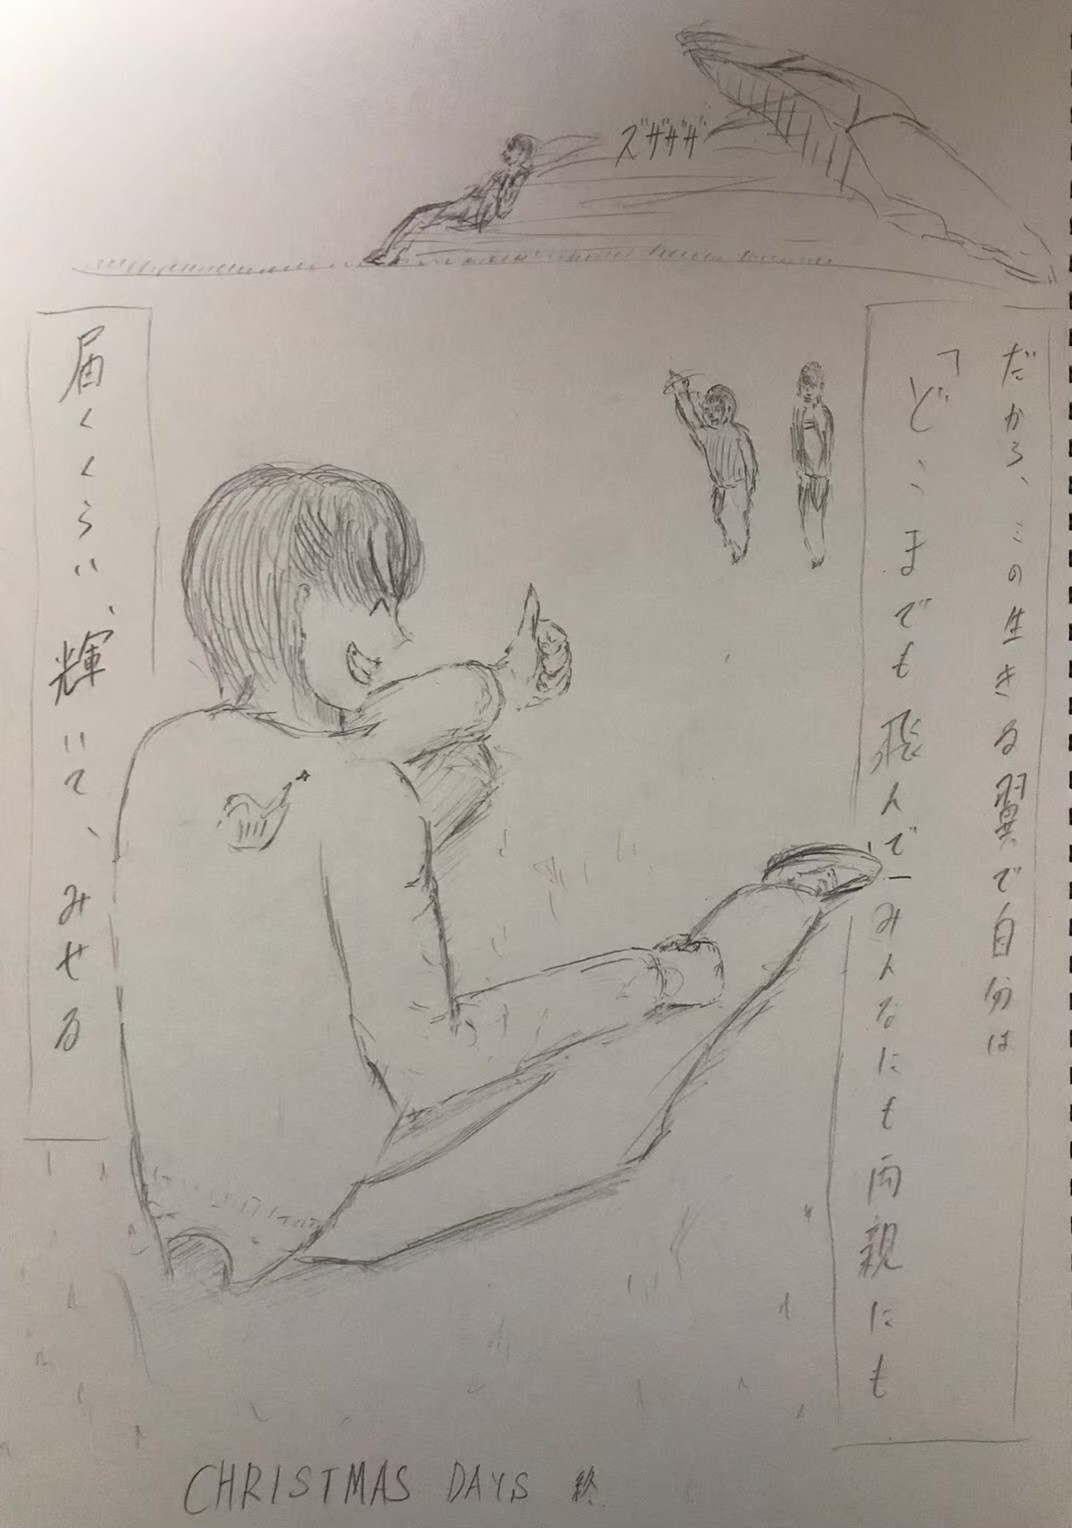 ズザザザ
だから、この生きる翼で自分は
「どこまでも飛んで」みんなにも両親にも
届くくらい、輝いて、みせる
CHRISTMAS DAYS 終